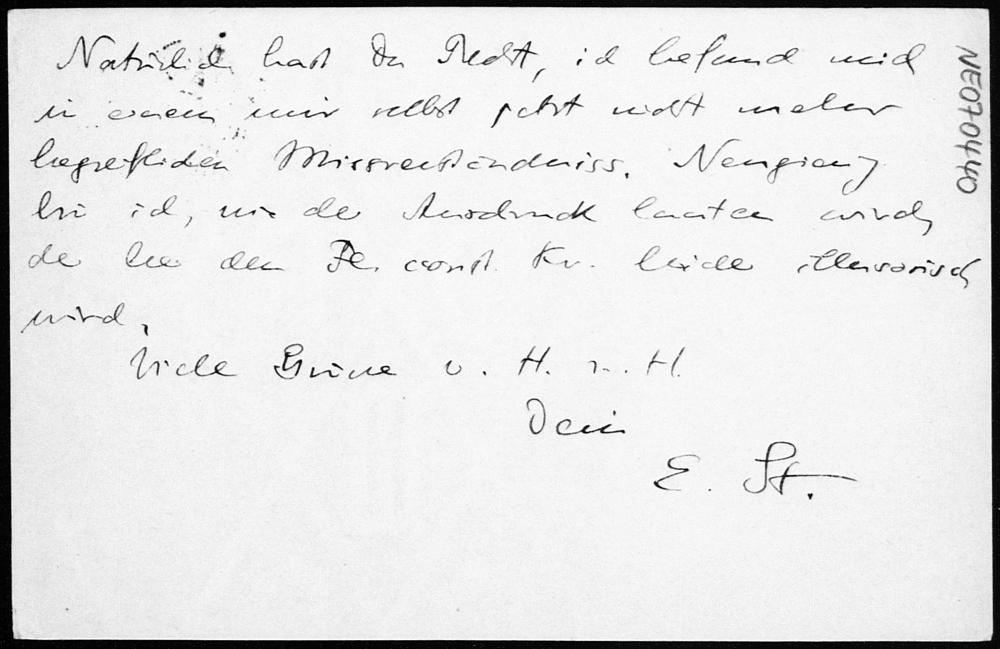 Natürlich hast Du Recht, ich befand mich
in einem mir selbst jetzt nicht mehr
begreiflichen Missverständniss. Neugierig
bin ich, wie der Ausdruck lauten wird,
der bei den const. Kr. beide illusorisch
wird.
Viele Grüsse v. H. z. H.
Dein
E. St.
NE070440